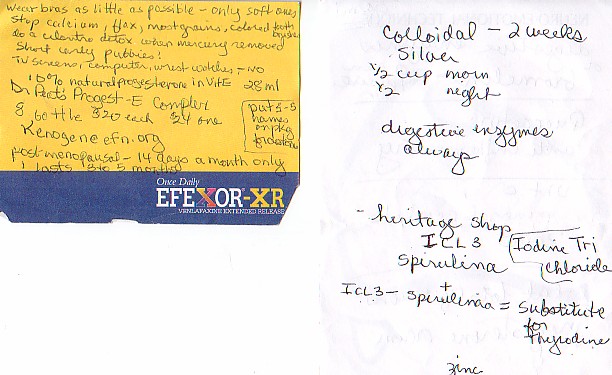 wear bras as little as possible - only soft ones
stop calcium, flax, most grains, colored tooth
brushes
do a cilantro detox when mercury removed
short curly pubbies!
TV screens, computer, wrist watches - NO
10% natural progesterone in Vit E 28 ml
Dr Peat's Progest-E Complex
8 bottle $20 each $24 one
put 3-5
names
on pkg
Kenogene efn.org
post-menopausal - 14 days a month only
lasts 3 to 5 months
Once Daily
EFFEXOR-XR
VENLAFAXINE EXTENDED RELEASE
Colloidal - 2 weeks
Silver
1/2 cup morn
1/2 night
digestive enzymes
always
- heritage shop
ICL3
Iodine Tri
chloride
spirulina
ICL3 - + spirulina = substitute
for
Thyrodine
zinc